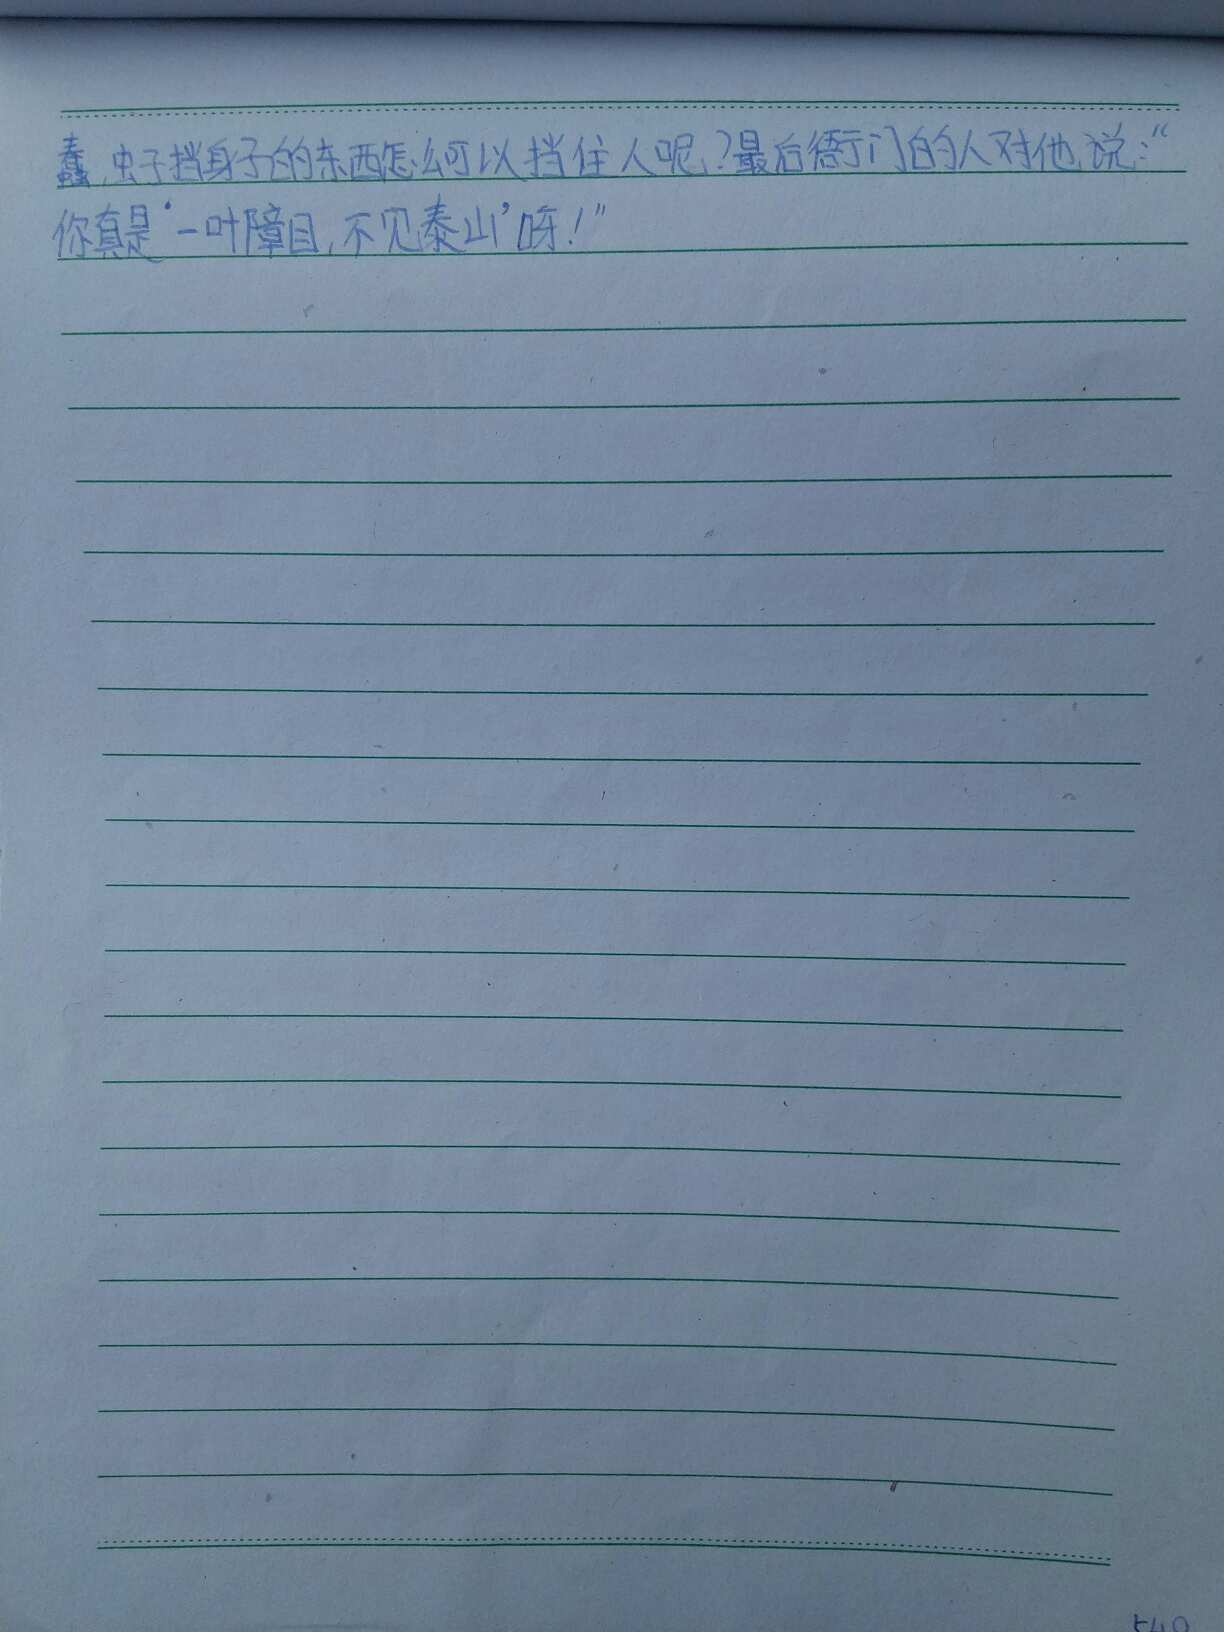 蠢,虫子挡身子的东西怎么可以挡住人呢?最后衙门的人对他说:“
你真是‘一叶障目,不见泰山’呀!”